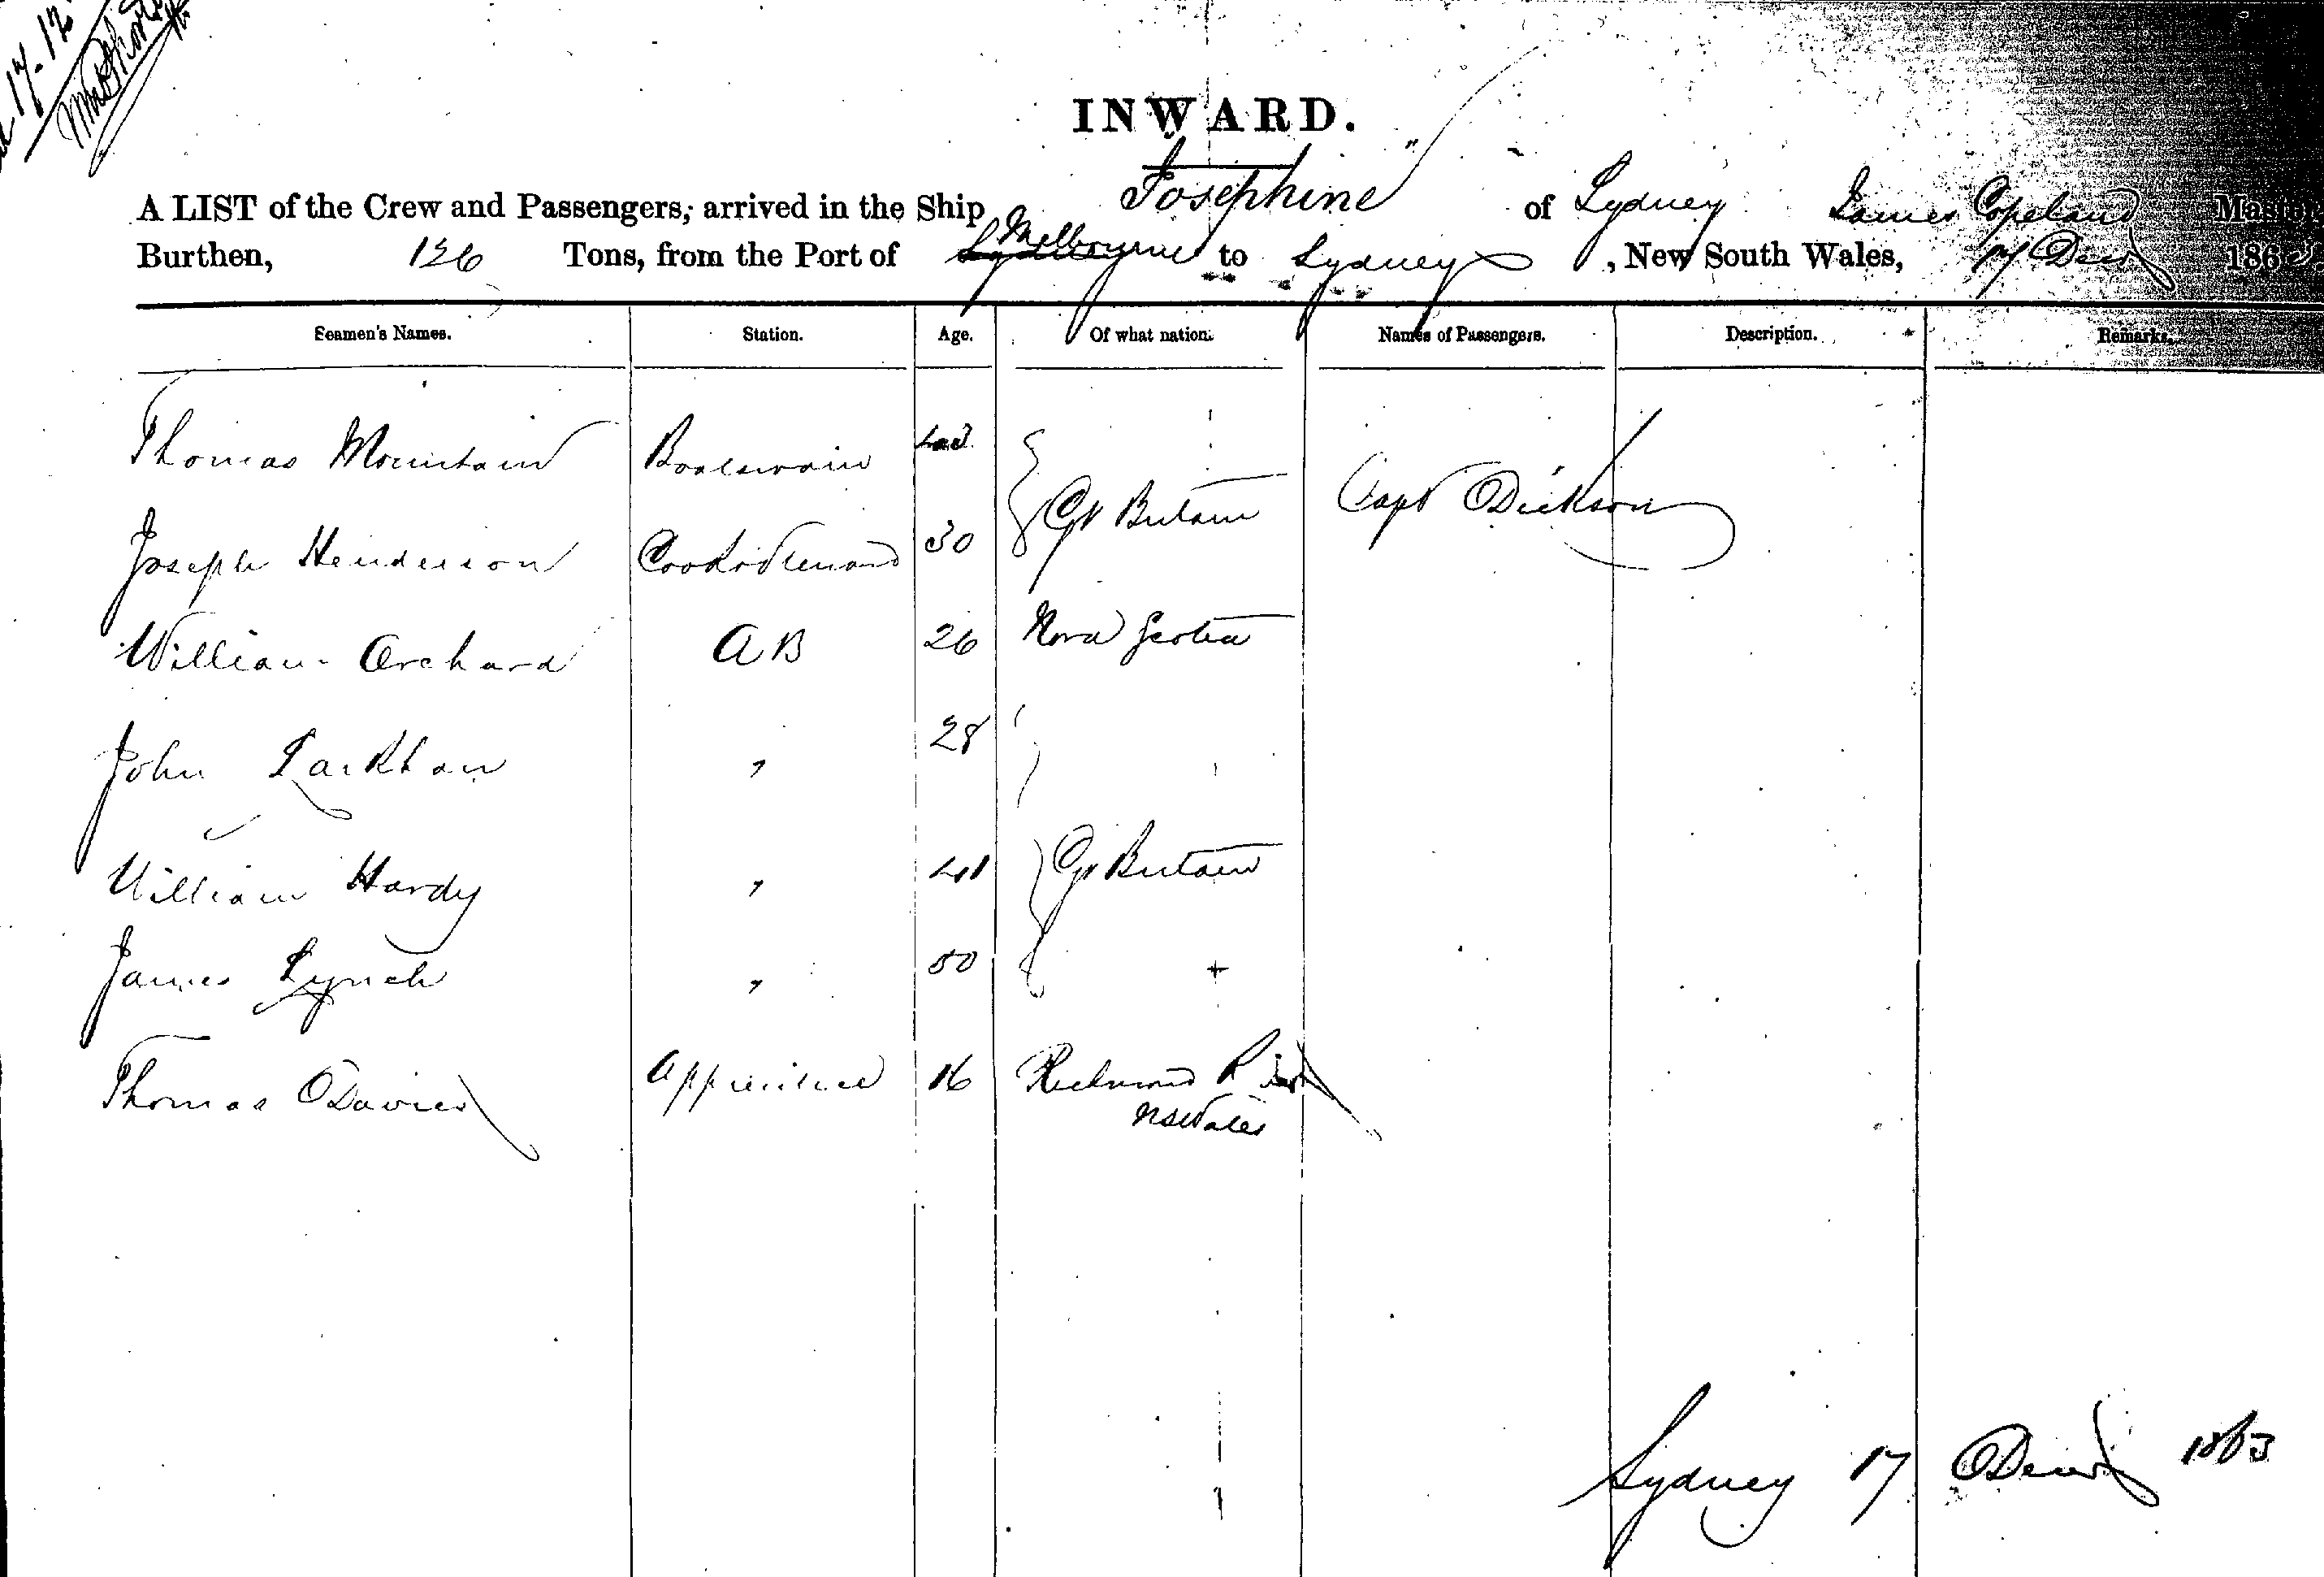 17-12
INWARD.
A LIST of the Crew and Passengers, arrived in the Ship "Josephine" of Sydney James Copeland Master
Burthen, 126 Tons, from the Port of Melbourne to Sydney, New South Wales, 17 Decr 1863
Seamen's Names. Station. Age. Of what nation. Names of Passengers. Description. Remarks.
Thomas Mountain Boatswain Gt Britain Capt Dickson
Joseph Henderson Cook & Steward 30
William Orchard AB 26 Nova Scotia
John Larkham " 28
William Hardy " 41 Gt Britain
James Lynch " 50
Thomas Davies Apprentice 16 Richmond R
NSWales
Sydney 17 Decr 1863